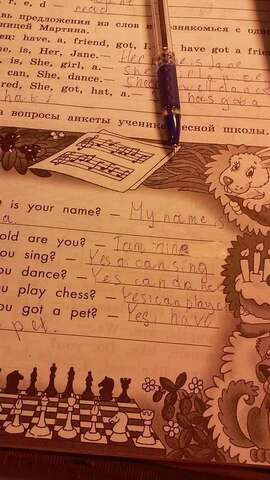 r, e, d — read
вь предложения из слов и знакомься с одно
ницей Мартина.
ец: have, a, friend, got, I. — I have got a frien
e, is, Her, Jane. — Her name is Jane
is, She, girl, a. — She
can, She, dance. — She can dance
red, She, got, hat, a. — has got a
hat
а вопросы анкеты ученика лесной школы.
is your name? — My name is
old are you? — I am nine
u sing? — Yes a can sing
u dance? — Yes can dance
u play chess? — Yes i can play
u got a pet? — Yes, i have
a pet.